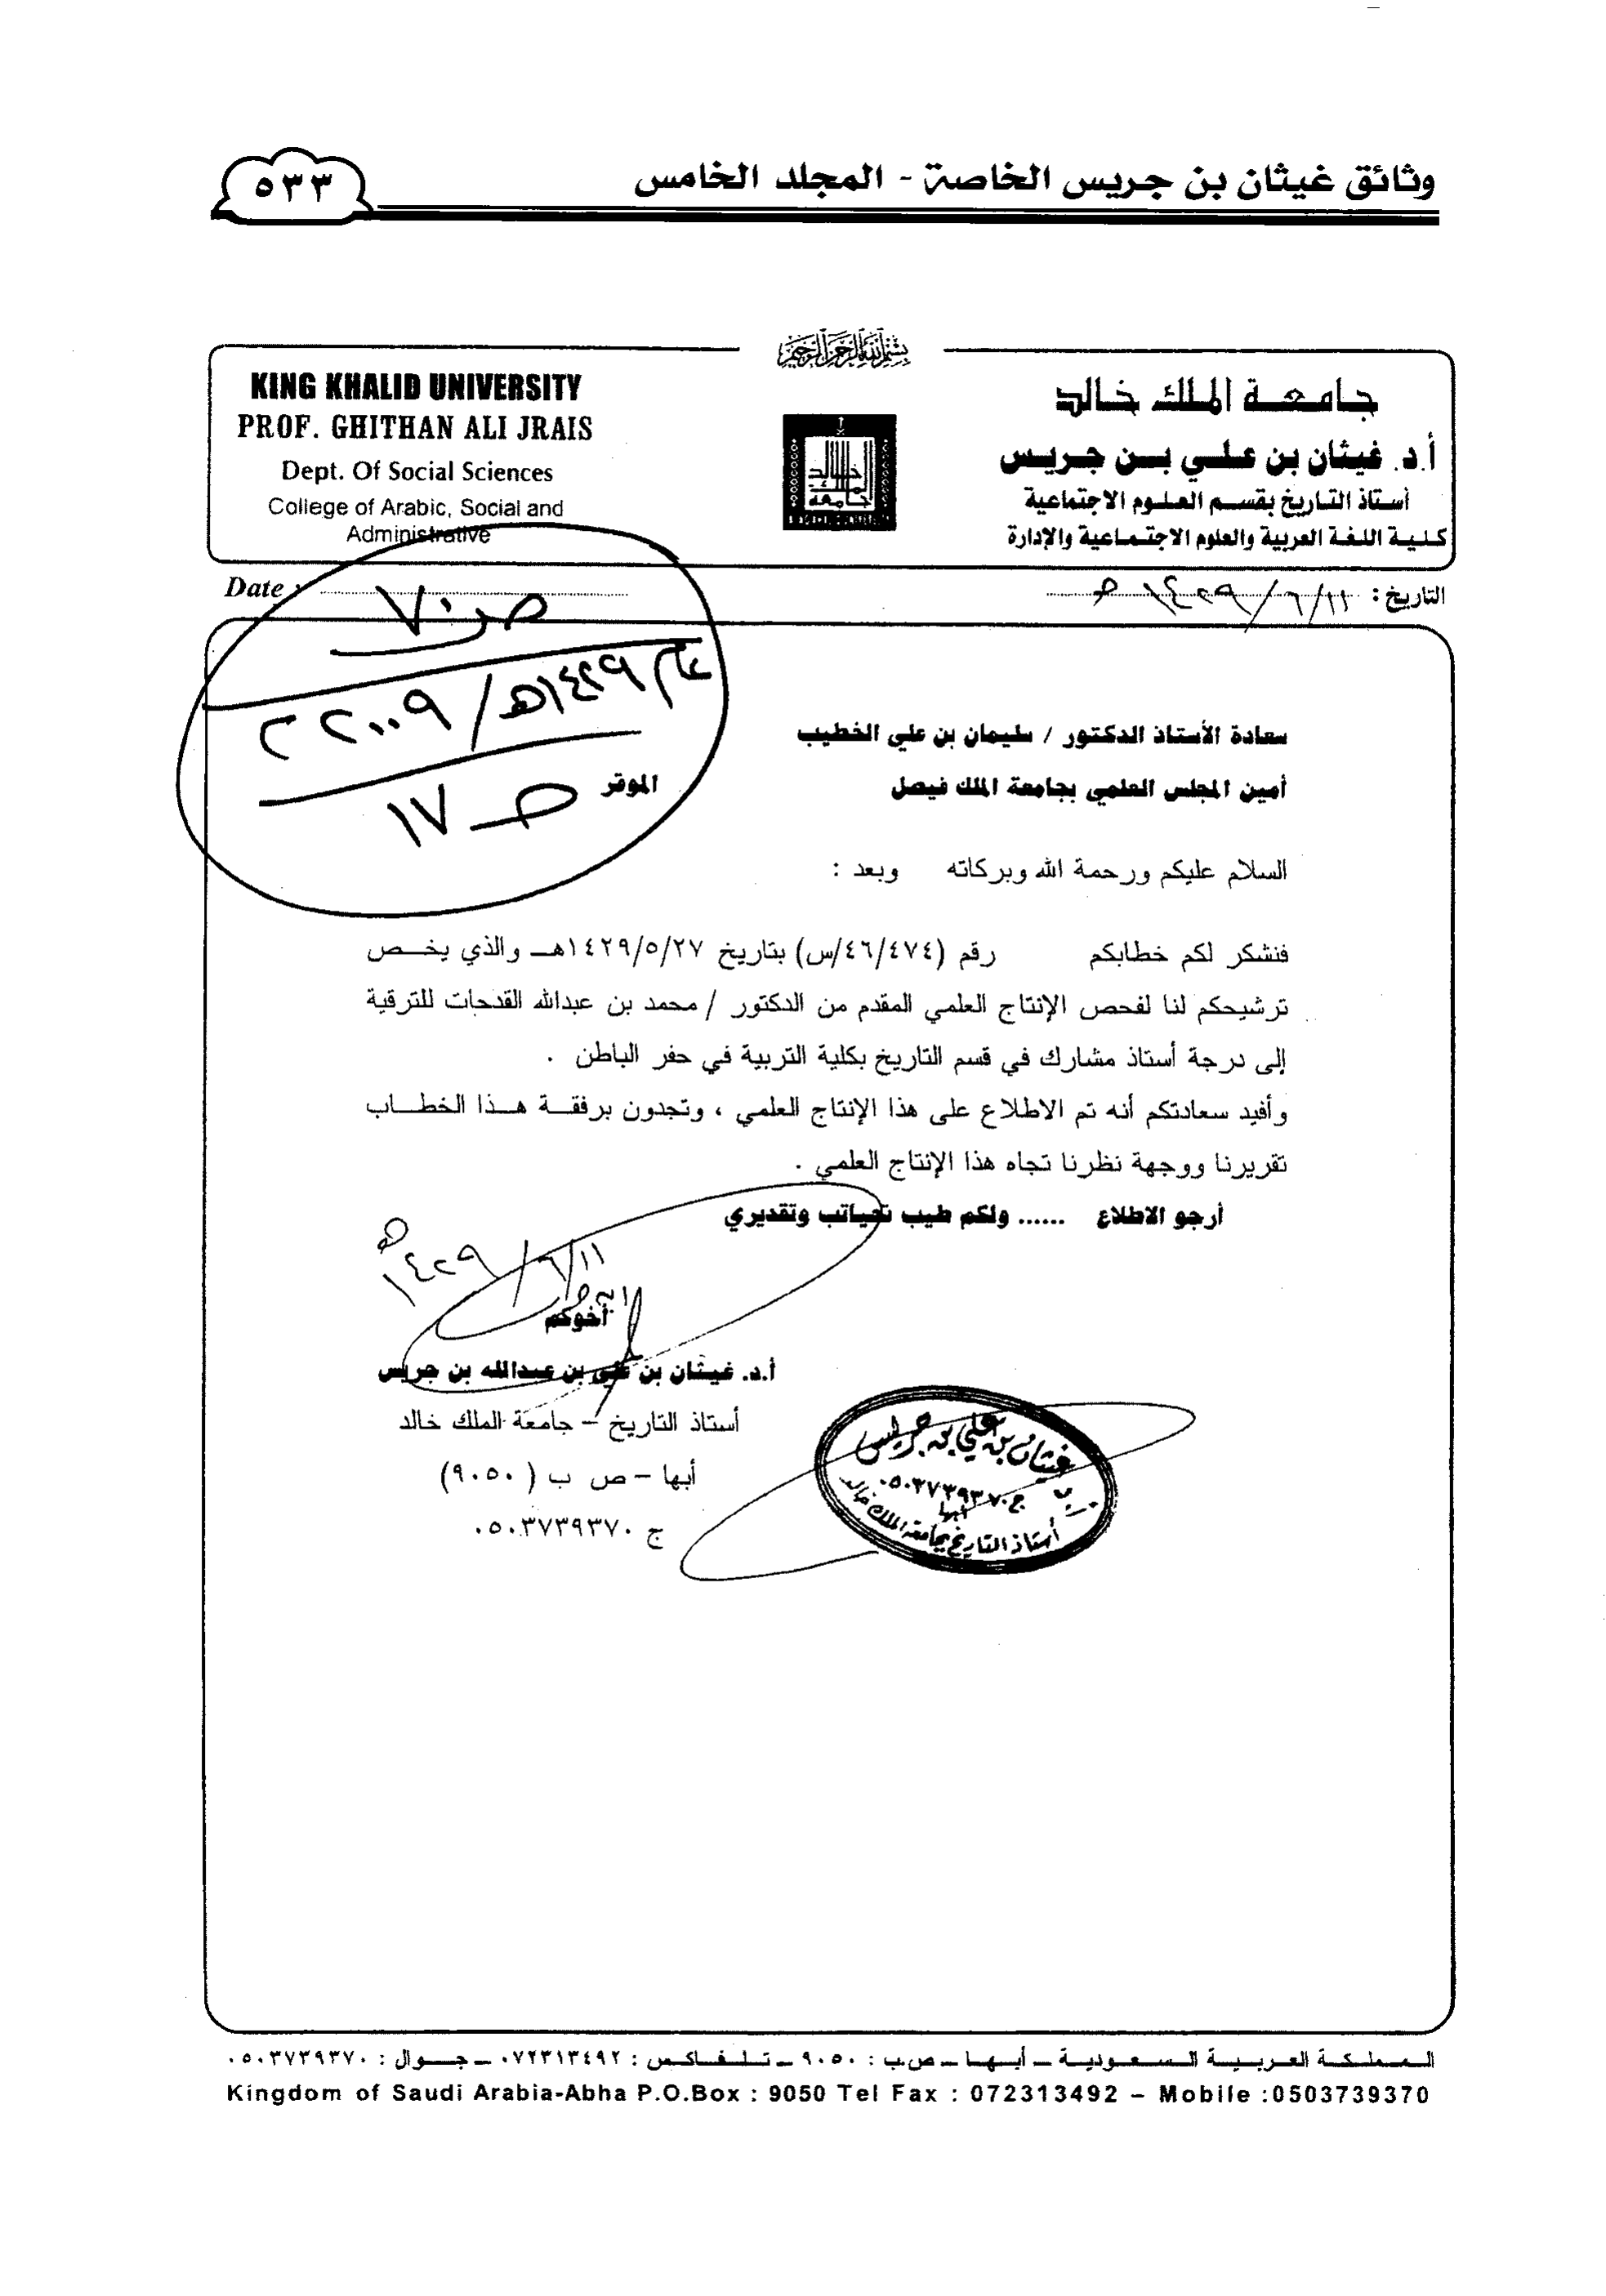 وثائق غيثان بن جريس الخاصة - المجلد الخامس
٥٣٣
بسم الله الرحمن الرحيم
جامعة الملك خالد
أ.د. غيثان بن علي بن جريس
أستاذ التاريخ بقسم العلوم الاجتماعية
كلية اللغة العربية والعلوم الاجتماعية والإدارة
KING KHALID UNIVERSITY
PROF. GHITHAN ALI JRAIS
Dept. Of Social Sciences
College of Arabic, Social and
Administrative
التاريخ : ١١/٦/١٤٢٩هـ
Date :
عام ١٤٢٩هـ/٢٠٠٩م
ص ١٧
سعادة الأستاذ الدكتور / سليمان بن علي الخطيب
أمين المجلس العلمي بجامعة الملك فيصل الموقر
السلام عليكم ورحمة الله وبركاته وبعد :
فنشكر لكم خطابكم رقم (٤٦/٤٧٤/س) بتاريخ ١٤٢٩/٥/٢٧هـ والذي يخص
ترشيحكم لنا لفحص الإنتاج العلمي المقدم من الدكتور / محمد بن عبدالله القدحات للترقية
إلى درجة أستاذ مشارك في قسم التاريخ بكلية التربية في حفر الباطن .
وأفيد سعادتكم أنه تم الاطلاع على هذا الإنتاج العلمي ، وتجدون برفقة هذا الخطاب
تقريرنا ووجهة نظرنا تجاه هذا الإنتاج العلمي .
أرجو الاطلاع ...... ولكم طيب تحياتب وتقديري
١١/٦/١٤٢٩هـ
أخوكم
أ.د. غيثان بن علي بن عبدالله بن جريس
أستاذ التاريخ – جامعة الملك خالد
أبها – ص ب (٩٠٥٠)
ج ٠٥٠٣٧٣٩٣٧٠
غيثان بن علي بن جريس
ج ٠٥٠٣٧٣٩٣٧٠
أبها
أستاذ التاريخ بجامعة الملك خالد
المملكة العربية السعودية – أبها – ص.ب : ٩٠٥٠ – تلفاكس : ٠٧٢٣١٣٤٩٢ – جوال : ٠٥٠٣٧٣٩٣٧٠
Kingdom of Saudi Arabia-Abha P.O.Box : 9050 Tel Fax : 072313492 – Mobile :0503739370